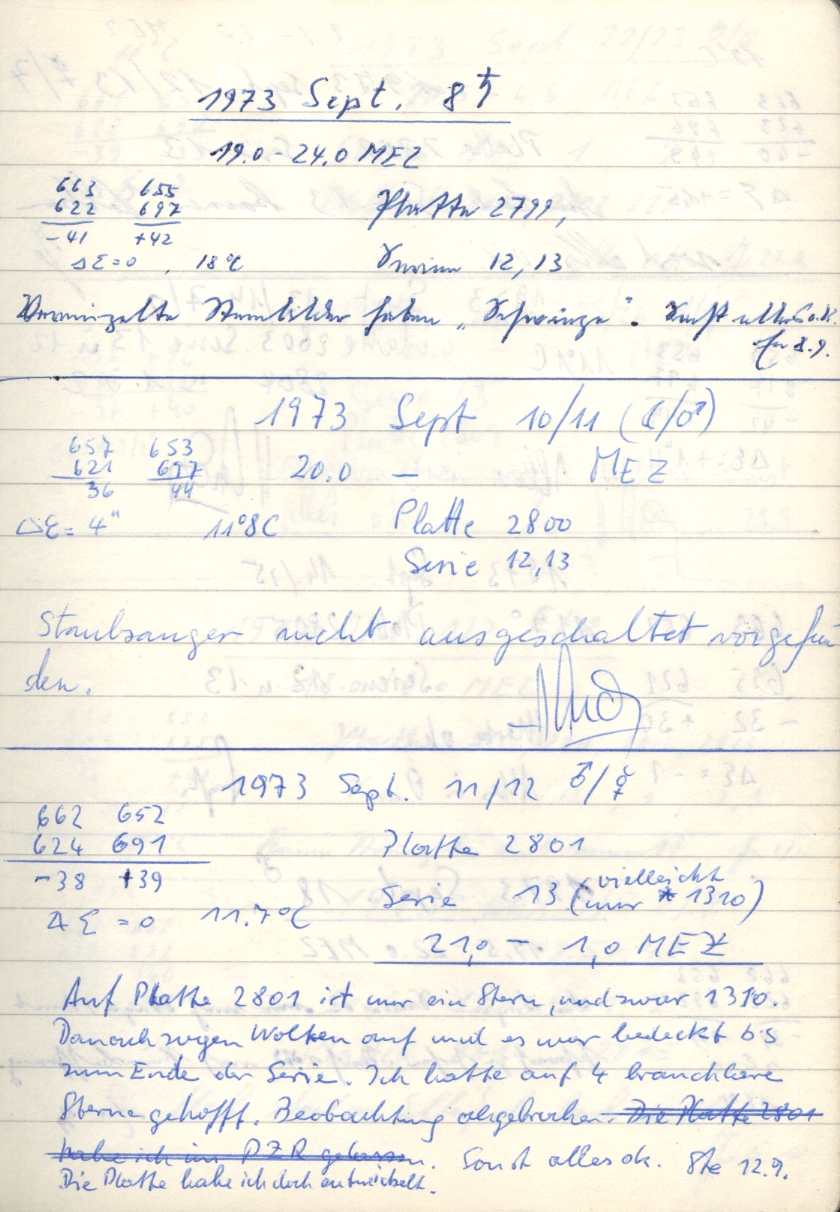 1973 Sept. 8 ♄
19.0 - 24.0 MEZ
663 655
622 697 Platte 2799,
-41 +42
Δε=0 , 18°C Serien 12, 13
Vereinzelte Sternbilder haben „Schwänze". Sonst alles o.k.
8.9.
1973 Sept 10/11 (☾/♂)
657 653
621 697 20.0 — MEZ
36 44
Δε = 4" 11°8C Platte 2800
Serie 12,13
Staubsauger nicht ausgeschaltet vorgefun
den.
1973 Sept. 11/12 ♂/☿
662 652
624 691 Platte 2801
-38 +39
Serie 13 (vielleicht nur * 1310)
Δε = 0 11.7°C
21,0 - 1,0 MEZ
Auf Platte 2801 ist nur ein Stern, und zwar 1310.
Danach zogen Wolken auf und es war bedeckt bis
zum Ende der Serie. Ich hatte auf 4 brauchbare
Sterne gehofft. Beobachtung abgebrochen. Die Platte 2801
habe ich im PZR gelassen. Sonst alles ok. Ste 12.9.
Die Platte habe ich doch entwickelt.